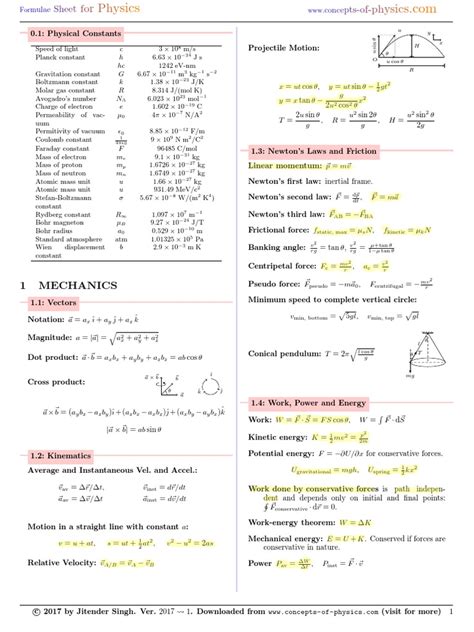 Formulae Sheet for Physics
www.concepts-of-physics.com
0.1: Physical Constants
Speed of light c 3 × 10⁸ m/s
Planck constant h 6.63 × 10⁻³⁴ J s
hc 1242 eV-nm
Gravitation constant G 6.67 × 10⁻¹¹ m³ kg⁻¹ s⁻²
Boltzmann constant k 1.38 × 10⁻²³ J/K
Molar gas constant R 8.314 J/(mol K)
Avogadro's number N_A 6.023 × 10²³ mol⁻¹
Charge of electron e 1.602 × 10⁻¹⁹ C
Permeability of vac-
uum μ₀ 4π × 10⁻⁷ N/A²
Permitivity of vacuum ε₀ 8.85 × 10⁻¹² F/m
Coulomb constant 1/4πε₀ 9 × 10⁹ N m²/C²
Faraday constant F 96485 C/mol
Mass of electron mₑ 9.1 × 10⁻³¹ kg
Mass of proton m_p 1.6726 × 10⁻²⁷ kg
Mass of neutron m_n 1.6749 × 10⁻²⁷ kg
Atomic mass unit u 1.66 × 10⁻²⁷ kg
Atomic mass unit u 931.49 MeV/c²
Stefan-Boltzmann
constant σ 5.67 × 10⁻⁸ W/(m² K⁴)
Rydberg constant R∞ 1.097 × 10⁷ m⁻¹
Bohr magneton μ_B 9.27 × 10⁻²⁴ J/T
Bohr radius a₀ 0.529 × 10⁻¹⁰ m
Standard atmosphere atm 1.01325 × 10⁵ Pa
Wien displacement
constant b 2.9 × 10⁻³ m K
1 MECHANICS
1.1: Vectors
Notation: a⃗ = aₓ î + a_y ĵ + a_z k̂
Magnitude: a = |a⃗| = √(aₓ² + a_y² + a_z²)
Dot product: a⃗ · b⃗ = aₓbₓ + a_yb_y + a_zb_z = ab cos θ
Cross product:
a⃗ × b⃗ = (a_yb_z − a_zb_y)î + (a_zbₓ − aₓb_z)ĵ + (aₓb_y − a_ybₓ)k̂
|a⃗ × b⃗| = ab sin θ
1.2: Kinematics
Average and Instantaneous Vel. and Accel.:
v⃗_av = Δr⃗/Δt, v⃗_inst = dr⃗/dt
a⃗_av = Δv⃗/Δt, a⃗_inst = dv⃗/dt
Motion in a straight line with constant a:
v = u + at, s = ut + ½at², v² − u² = 2as
Relative Velocity: v⃗_A/B = v⃗_A − v⃗_B
Projectile Motion:
x = ut cos θ, y = ut sin θ − ½gt²
y = x tan θ − g/(2u² cos² θ) x²
T = 2u sin θ/g, R = u² sin 2θ/g, H = u² sin² θ/2g
1.3: Newton's Laws and Friction
Linear momentum: p⃗ = mv⃗
Newton's first law: inertial frame.
Newton's second law: F⃗ = dp⃗/dt, F⃗ = ma⃗
Newton's third law: F⃗_AB = −F⃗_BA
Frictional force: f_static, max = μ_sN, f_kinetic = μ_kN
Banking angle: v²/rg = tan θ, v²/rg = (μ+tan θ)/(1−μ tan θ)
Centripetal force: F_c = mv²/r, a_c = v²/r
Pseudo force: F⃗_pseudo = −ma⃗₀, F_centrifugal = −mv²/r
Minimum speed to complete vertical circle:
v_min, bottom = √5gl, v_min, top = √gl
Conical pendulum: T = 2π√(l cos θ/g)
1.4: Work, Power and Energy
Work: W = F⃗ · S⃗ = FS cos θ, W = ∫ F⃗ · dS⃗
Kinetic energy: K = ½mv² = p²/2m
Potential energy: F = −∂U/∂x for conservative forces.
U_gravitational = mgh, U_spring = ½kx²
Work done by conservative forces is path indepen-
dent and depends only on initial and final points:
∮ F⃗_conservative · dr⃗ = 0.
Work-energy theorem: W = ΔK
Mechanical energy: E = U + K. Conserved if forces are
conservative in nature.
Power P_av = ΔW/Δt, P_inst = F⃗ · v⃗
© 2017 by Jitender Singh. Ver. 2017 ⇝ 1. Downloaded from www.concepts-of-physics.com (visit for more) 1